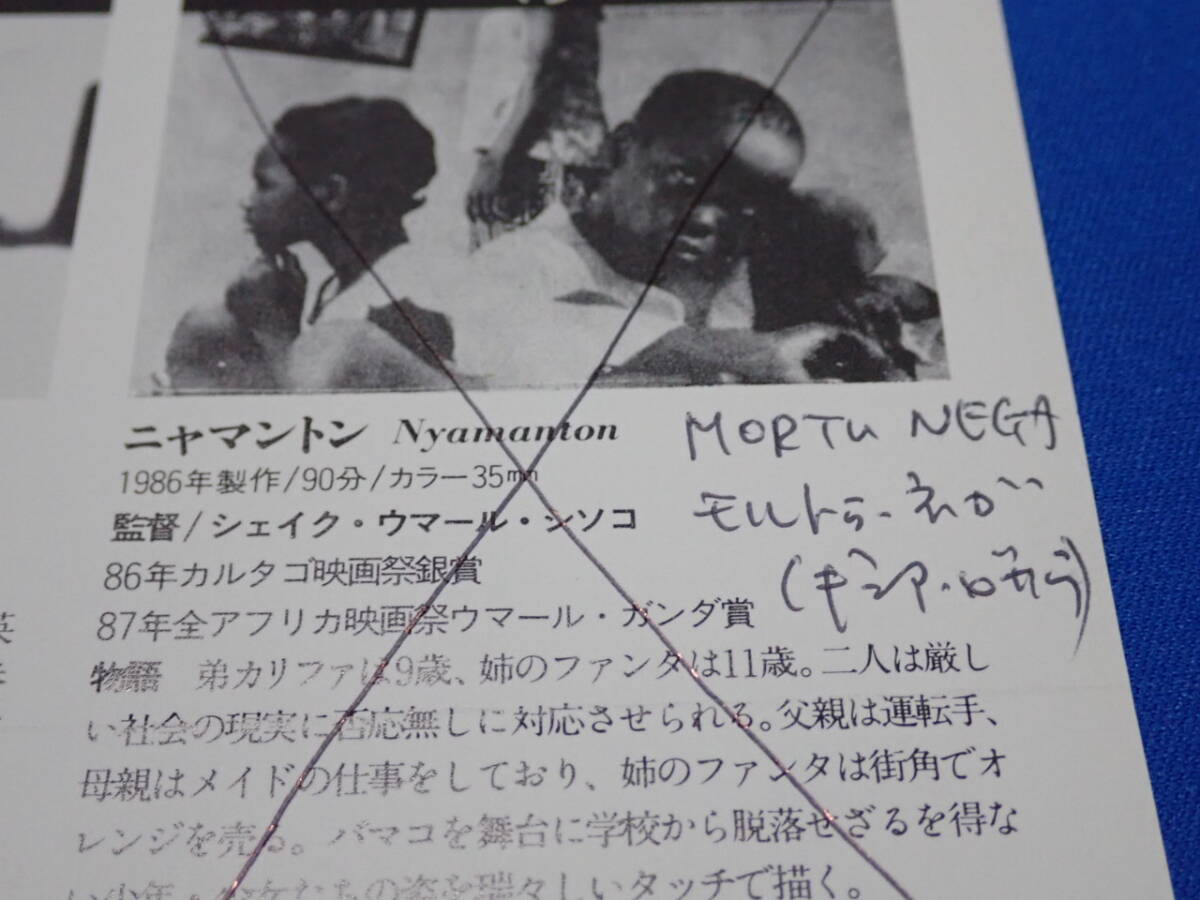 ニャマントン Nyamanton
1986年製作/90分/カラー35mm
監督/シェイク・ウマール・シソコ
86年カルタゴ映画祭銀賞
87年全アフリカ映画祭ウマール・ガンダ賞
物語 弟カリファは9歳、姉のファンタは11歳。二人は厳し
い社会の現実に否応無しに対応させられる。父親は運転手、
母親はメイドの仕事をしており、姉のファンタは街角でオ
レンジを売る。バマコを舞台に学校から脱落せざるを得な
い少年・少女たちの姿を瑞々しいタッチで描く。
MORTU NEGA
モルトゥ・ネガ
(ギニア・ビサウ)
英